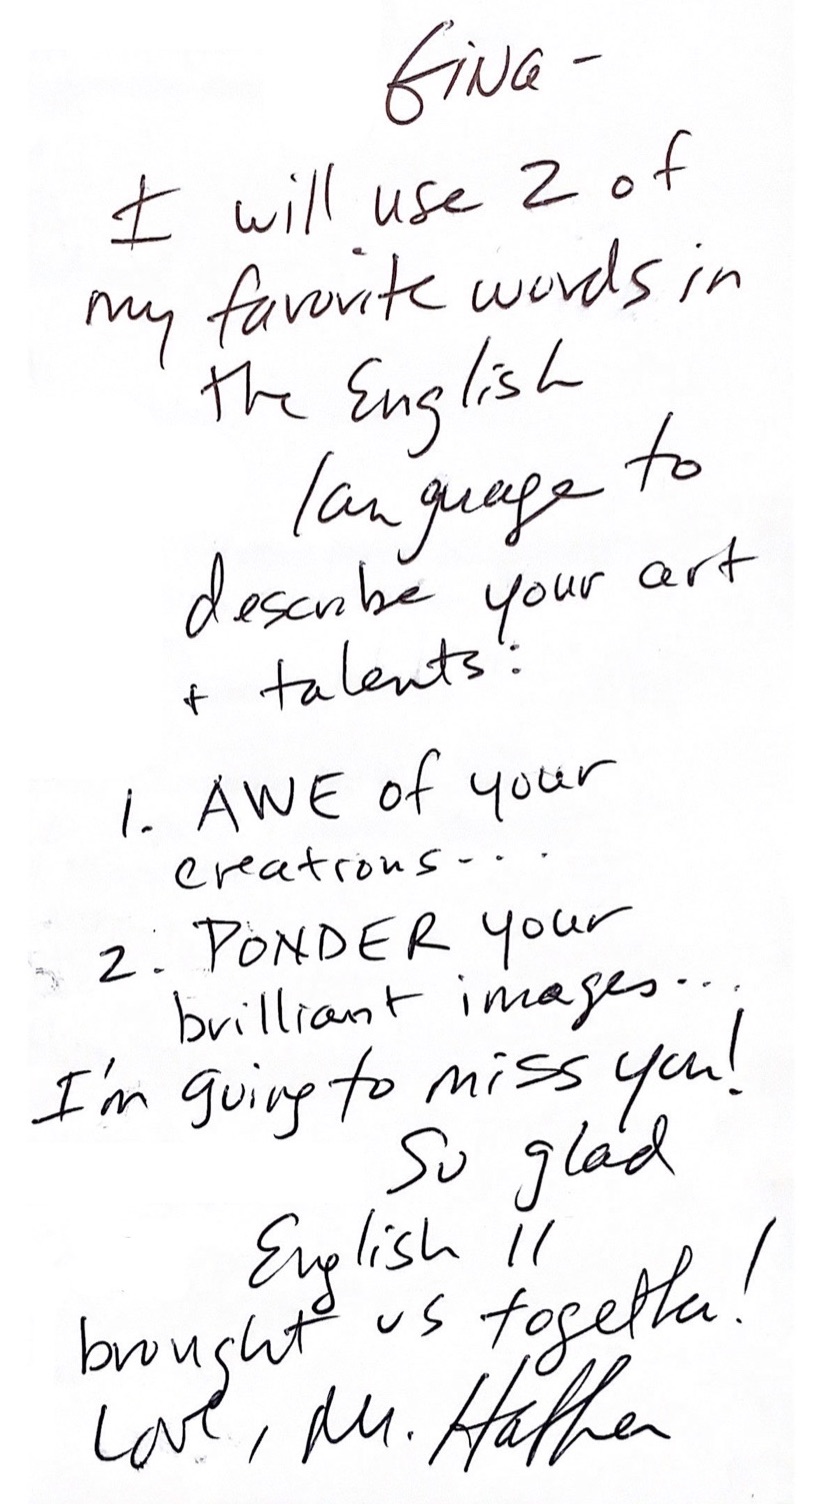 Gina -
I will use 2 of
my favorite words in
the English
language to
describe your art
+ talents:
1. AWE of your
creations...
2. PONDER your
brilliant images...
I'm going to miss you!
So glad
English 11
brought us together!
Love,